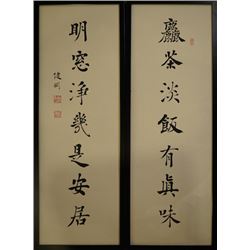 麤茶淡飯有眞味
明窓淨幾是安居